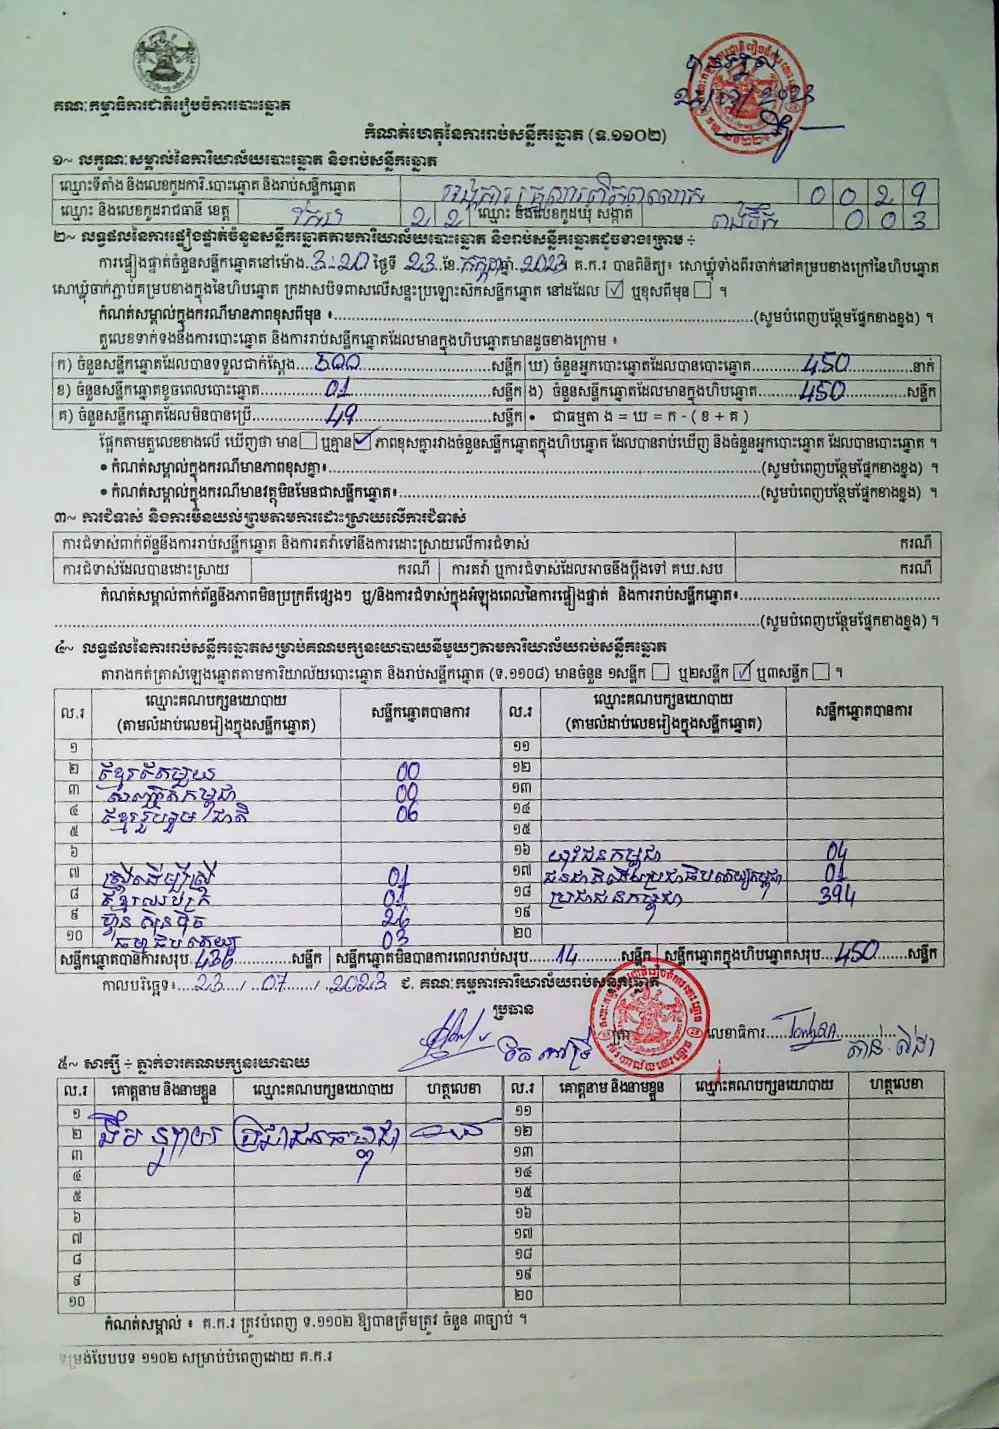 គណៈកម្មាធិការជាតិរៀបចំការបោះឆ្នោត
កំណត់ហេតុនៃការរាប់សន្លឹកឆ្នោត (ទ.១១០២)
១~ លក្ខណៈសម្គាល់នៃការិយាល័យបោះឆ្នោត និងរាប់សន្លឹកឆ្នោត
ឈ្មោះទីតាំង និងលេខកូដការិ.បោះឆ្នោត និងរាប់សន្លឹកឆ្នោត 0 0 2 9
ឈ្មោះ និងលេខកូដរាជធានី ខេត្ត កែប 2 2 ឈ្មោះ និងលេខកូដឃុំ សង្កាត់ 0 0 3
២~ លទ្ធផលនៃការផ្ទៀងផ្ទាត់ចំនួនសន្លឹកឆ្នោតតាមការិយាល័យបោះឆ្នោត និងរាប់សន្លឹកឆ្នោតដូចខាងក្រោម ÷
ការផ្ទៀងផ្ទាត់ចំនួនសន្លឹកឆ្នោតនៅម៉ោង 3:20 ថ្ងៃទី 23 ខែ កក្កដា ឆ្នាំ 2023 គ.ក.រ បានពិនិត្យ៖ សោឃ្លុំទាំងពីរចាក់នៅគម្របខាងក្រៅនៃហិបឆ្នោត
សោឃ្លុំចាក់ភ្ជាប់គម្របខាងក្នុងនៃហិបឆ្នោត ក្រដាសបិទពាសលើសន្ទះប្រឡោះស៊កសន្លឹកឆ្នោត នៅដដែល ☑ ឬខុសពីមុន ☐ ។
កំណត់សម្គាល់ក្នុងករណីមានភាពខុសពីមុន ៖ (សូមបំពេញបន្ថែមផ្នែកខាងខ្នង) ។
តួលេខទាក់ទងនឹងការបោះឆ្នោត និងការរាប់សន្លឹកឆ្នោតដែលមានក្នុងហិបឆ្នោតមានដូចខាងក្រោម ៖
ក) ចំនួនសន្លឹកឆ្នោតដែលបានទទួលជាក់ស្តែង 500 សន្លឹក ឃ) ចំនួនអ្នកបោះឆ្នោតដែលបានបោះឆ្នោត 450 នាក់
ខ) ចំនួនសន្លឹកឆ្នោតខូចពេលបោះឆ្នោត 01 សន្លឹក ង) ចំនួនសន្លឹកឆ្នោតដែលមានក្នុងហិបឆ្នោត 450 សន្លឹក
គ) ចំនួនសន្លឹកឆ្នោតដែលមិនបានប្រើ 49 សន្លឹក • ជាធម្មតា ង = ឃ = ក - ( ខ + គ )
ផ្អែកតាមតួលេខខាងលើ ឃើញថា មាន ☐ ឬគ្មាន ☑ ភាពខុសគ្នារវាងចំនួនសន្លឹកឆ្នោតក្នុងហិបឆ្នោត ដែលបានរាប់ឃើញ និងចំនួនអ្នកបោះឆ្នោត ដែលបានបោះឆ្នោត ។
• កំណត់សម្គាល់ក្នុងករណីមានភាពខុសគ្នា៖ (សូមបំពេញបន្ថែមផ្នែកខាងខ្នង) ។
• កំណត់សម្គាល់ក្នុងករណីមានវត្ថុមិនមែនជាសន្លឹកឆ្នោត៖ (សូមបំពេញបន្ថែមផ្នែកខាងខ្នង) ។
៣~ ការជំទាស់ និងការមិនយល់ព្រមតាមការដោះស្រាយលើការជំទាស់
ការជំទាស់ពាក់ព័ន្ធនឹងការរាប់សន្លឹកឆ្នោត និងការតវ៉ាទៅនឹងការដោះស្រាយលើការជំទាស់ ករណី
ការជំទាស់ដែលបានដោះស្រាយ ករណី ការតវ៉ា ឬការជំទាស់ដែលអាចនឹងប្តឹងទៅ គឃ.សប ករណី
កំណត់សម្គាល់ពាក់ព័ន្ធនឹងភាពមិនប្រក្រតីផ្សេងៗ ឬ/និងការជំទាស់ក្នុងអំឡុងពេលនៃការផ្ទៀងផ្ទាត់ និងការរាប់សន្លឹកឆ្នោត៖
(សូមបំពេញបន្ថែមផ្នែកខាងខ្នង) ។
៤~ លទ្ធផលនៃការរាប់សន្លឹកឆ្នោតសម្រាប់គណបក្សនយោបាយនីមួយៗតាមការិយាល័យរាប់សន្លឹកឆ្នោត
តារាងកត់ត្រាសំឡេងឆ្នោតតាមការិយាល័យបោះឆ្នោត និងរាប់សន្លឹកឆ្នោត (ទ.១១០៨) មានចំនួន ១សន្លឹក ☐ ឬ២សន្លឹក ☑ ឬ៣សន្លឹក ☐ ។
ល.រ ឈ្មោះគណបក្សនយោបាយ (តាមលំដាប់លេខរៀងក្នុងសន្លឹកឆ្នោត) សន្លឹកឆ្នោតបានការ ល.រ ឈ្មោះគណបក្សនយោបាយ (តាមលំដាប់លេខរៀងក្នុងសន្លឹកឆ្នោត) សន្លឹកឆ្នោតបានការ
១ ១១
២ 00 ១២
៣ 00 ១៣
៤ ខ្មែររួបរួមជាតិ 06 ១៤
៥ ១៥
៦ ១៦ យុវជនកម្ពុជា 04
៧ ស្ត្រីដើម្បីស្ត្រី 01 ១៧ 01
៨ 01 ១៨ ប្រជាជនកម្ពុជា 394
៩ ហ៊្វុនស៊ិនប៉ិច 26 ១៩
១០ ធម្មាធិបតេយ្យ 03 ២០
សន្លឹកឆ្នោតបានការសរុប 436 សន្លឹក សន្លឹកឆ្នោតមិនបានការពេលរាប់សរុប 14 សន្លឹក សន្លឹកឆ្នោតក្នុងហិបឆ្នោតសរុប 450 សន្លឹក
កាលបរិច្ឆេទ៖ 23 / 07 / 2023 ជ. គណៈកម្មការការិយាល័យរាប់សន្លឹកឆ្នោត
ប្រធាន
ត្រា លេខាធិការ
៥~ សាក្សី ÷ ភ្នាក់ងារគណបក្សនយោបាយ
ល.រ គោត្តនាម និងនាមខ្លួន ឈ្មោះគណបក្សនយោបាយ ហត្ថលេខា ល.រ គោត្តនាម និងនាមខ្លួន ឈ្មោះគណបក្សនយោបាយ ហត្ថលេខា
១ ១១
២ ប្រជាជនកម្ពុជា ១២
៣ ១៣
៤ ១៤
៥ ១៥
៦ ១៦
៧ ១៧
៨ ១៨
៩ ១៩
១០ ២០
កំណត់សម្គាល់ ៖ គ.ក.រ ត្រូវបំពេញ ទ.១១០២ ឱ្យបានត្រឹមត្រូវ ចំនួន ៣ច្បាប់ ។
ទម្រង់បែបបទ ១១០២ សម្រាប់បំពេញដោយ គ.ក.រ